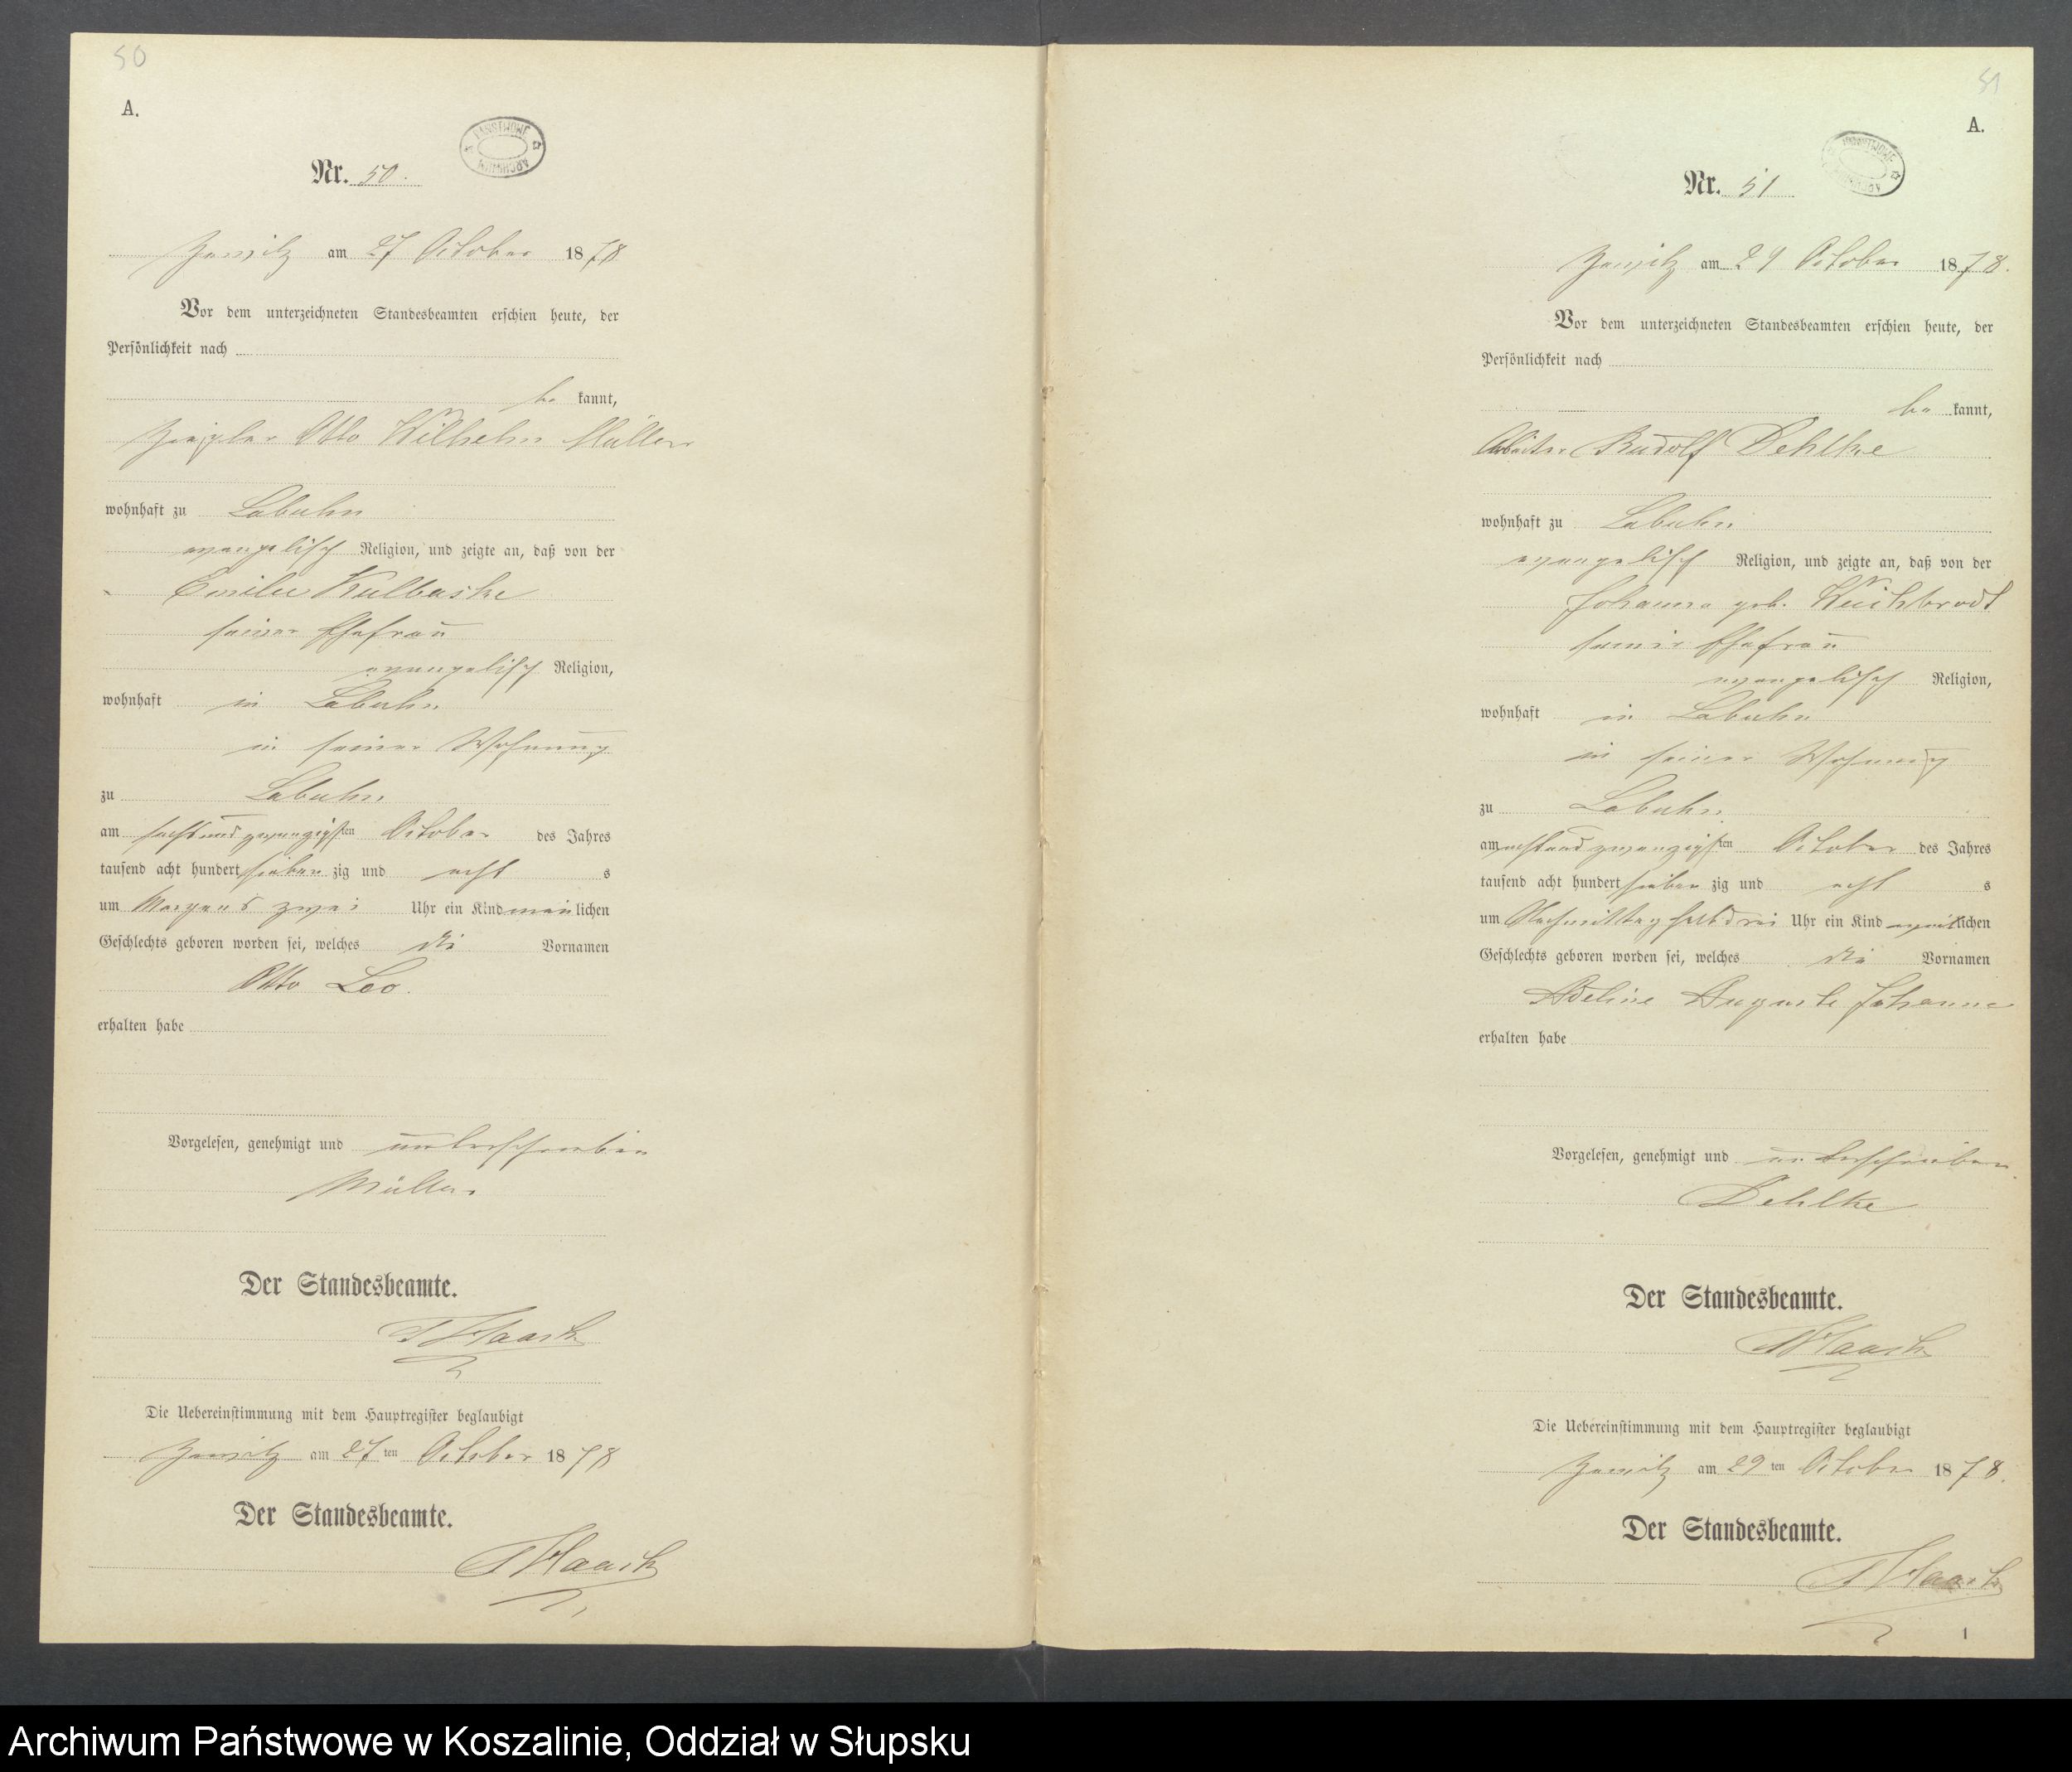 50
A.
Nr. 50.
PAŃSTWOWE ARCHIWUM
Zewitz am 27 October 1878
Vor dem unterzeichneten Standesbeamten erschien heute, der
Persönlichkeit nach
be kannt,
Otto Wilhelm Müller
wohnhaft zu Labuhn
evangelisch Religion, und zeigte an, daß von der
Emilie Kulbaske
seiner Ehefrau
evangelisch Religion,
wohnhaft in Labuhn
in seiner Wohnung
zu Labuhn
am sechsundzwanzigsten October des Jahres
tausend acht hundert sieben zig und acht s
um Morgens zwei Uhr ein Kind männlichen
Geschlechts geboren worden sei, welches die Vornamen
Otto Leo.
erhalten habe
Vorgelesen, genehmigt und unterschrieben
Müller
Der Standesbeamte.
Haack
Die Uebereinstimmung mit dem Hauptregister beglaubigt
Zewitz am 27ten October 1878
Der Standesbeamte.
Haack
51
A.
Nr. 51
PAŃSTWOWE ARCHIWUM
Zewitz am 29 October 1878.
Vor dem unterzeichneten Standesbeamten erschien heute, der
Persönlichkeit nach
be kannt,
Arbeiter Rudolf Dehlke
wohnhaft zu Labuhn
evangelisch Religion, und zeigte an, daß von der
Johanna geb. Weichbrodt
seiner Ehefrau
evangelisch Religion,
wohnhaft in Labuhn
in seiner Wohnung
zu Labuhn
am achtundzwanzigsten October des Jahres
tausend acht hundert sieben zig und acht s
um Nachmittag halb drei Uhr ein Kind weiblichen
Geschlechts geboren worden sei, welches die Vornamen
Adeline Auguste Johanne
erhalten habe
Vorgelesen, genehmigt und unterschrieben
Dehlke
Der Standesbeamte.
Haack
Die Uebereinstimmung mit dem Hauptregister beglaubigt
Zewitz am 29ten October 1878.
Der Standesbeamte.
Haack
1
Archiwum Państwowe w Koszalinie, Oddział w Słupsku